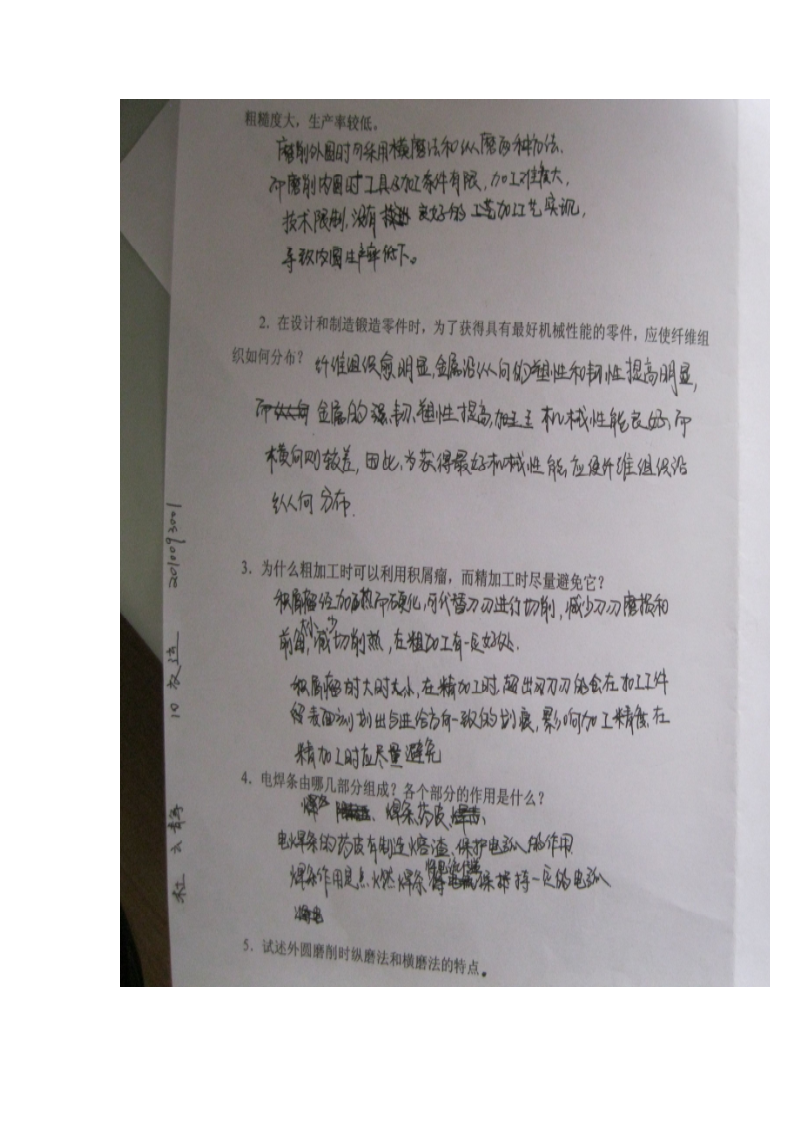 粗糙度大，生产率较低。
磨削外圆时可采用横磨法和纵磨两种方法，
而磨削内圆时工具及加工条件有限，加工难度大，
技术限制，没有良好的工艺加工艺实现，
导致内圆生产率低下。
2．在设计和制造锻造零件时，为了获得具有最好机械性能的零件，应使纤维组
织如何分布？
纤维组织愈明显，金属沿纵向的塑性和韧性提高明显，
而金属的强、韧、塑性提高，机械性能良好，而
横向则较差，因此，为获得最好机械性能，应使纤维组织沿
纵向分布.
3．为什么粗加工时可以利用积屑瘤，而精加工时尽量避免它？
积屑瘤经加热而硬化，可代替刀刃进行切削，减少刀刃磨损和
前角，减少切削热，在粗加工有一定好处.
积屑瘤时大时大小，在精加工时，超出刀刃的会在加工工件
表面刻划出与进给方向一致的划痕，影响加工精度，在
精加工时应尽量避免
4．电焊条由哪几部分组成？各个部分的作用是什么？
焊条药皮、
电焊条的药皮有制造熔渣、保护电弧的作用
焊条作用是点燃焊条保持一定的电弧
5．试述外圆磨削时纵磨法和横磨法的特点。
2010093001